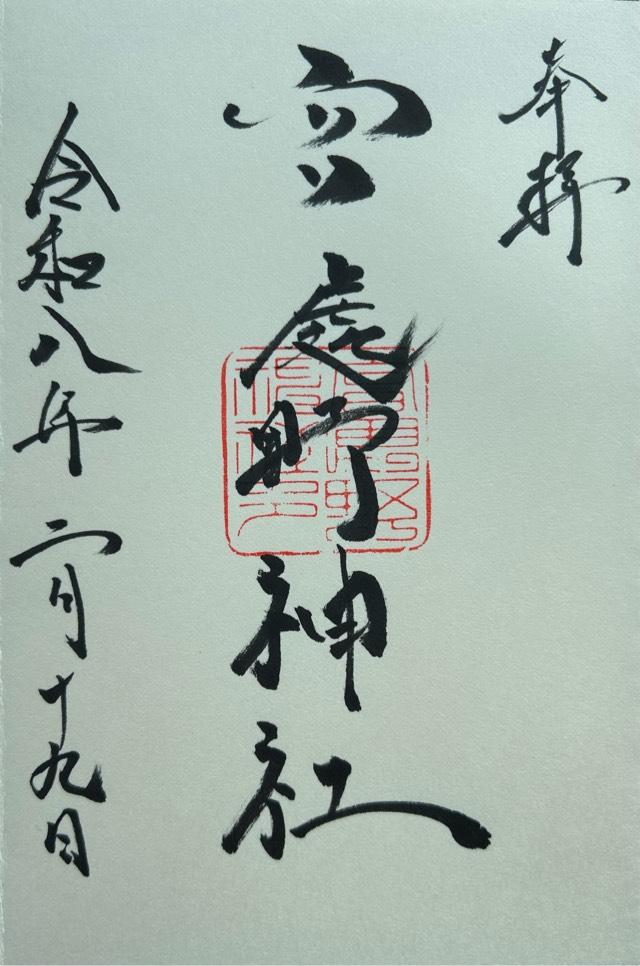 奉拝
宮處野神社
令和八年二月十九日